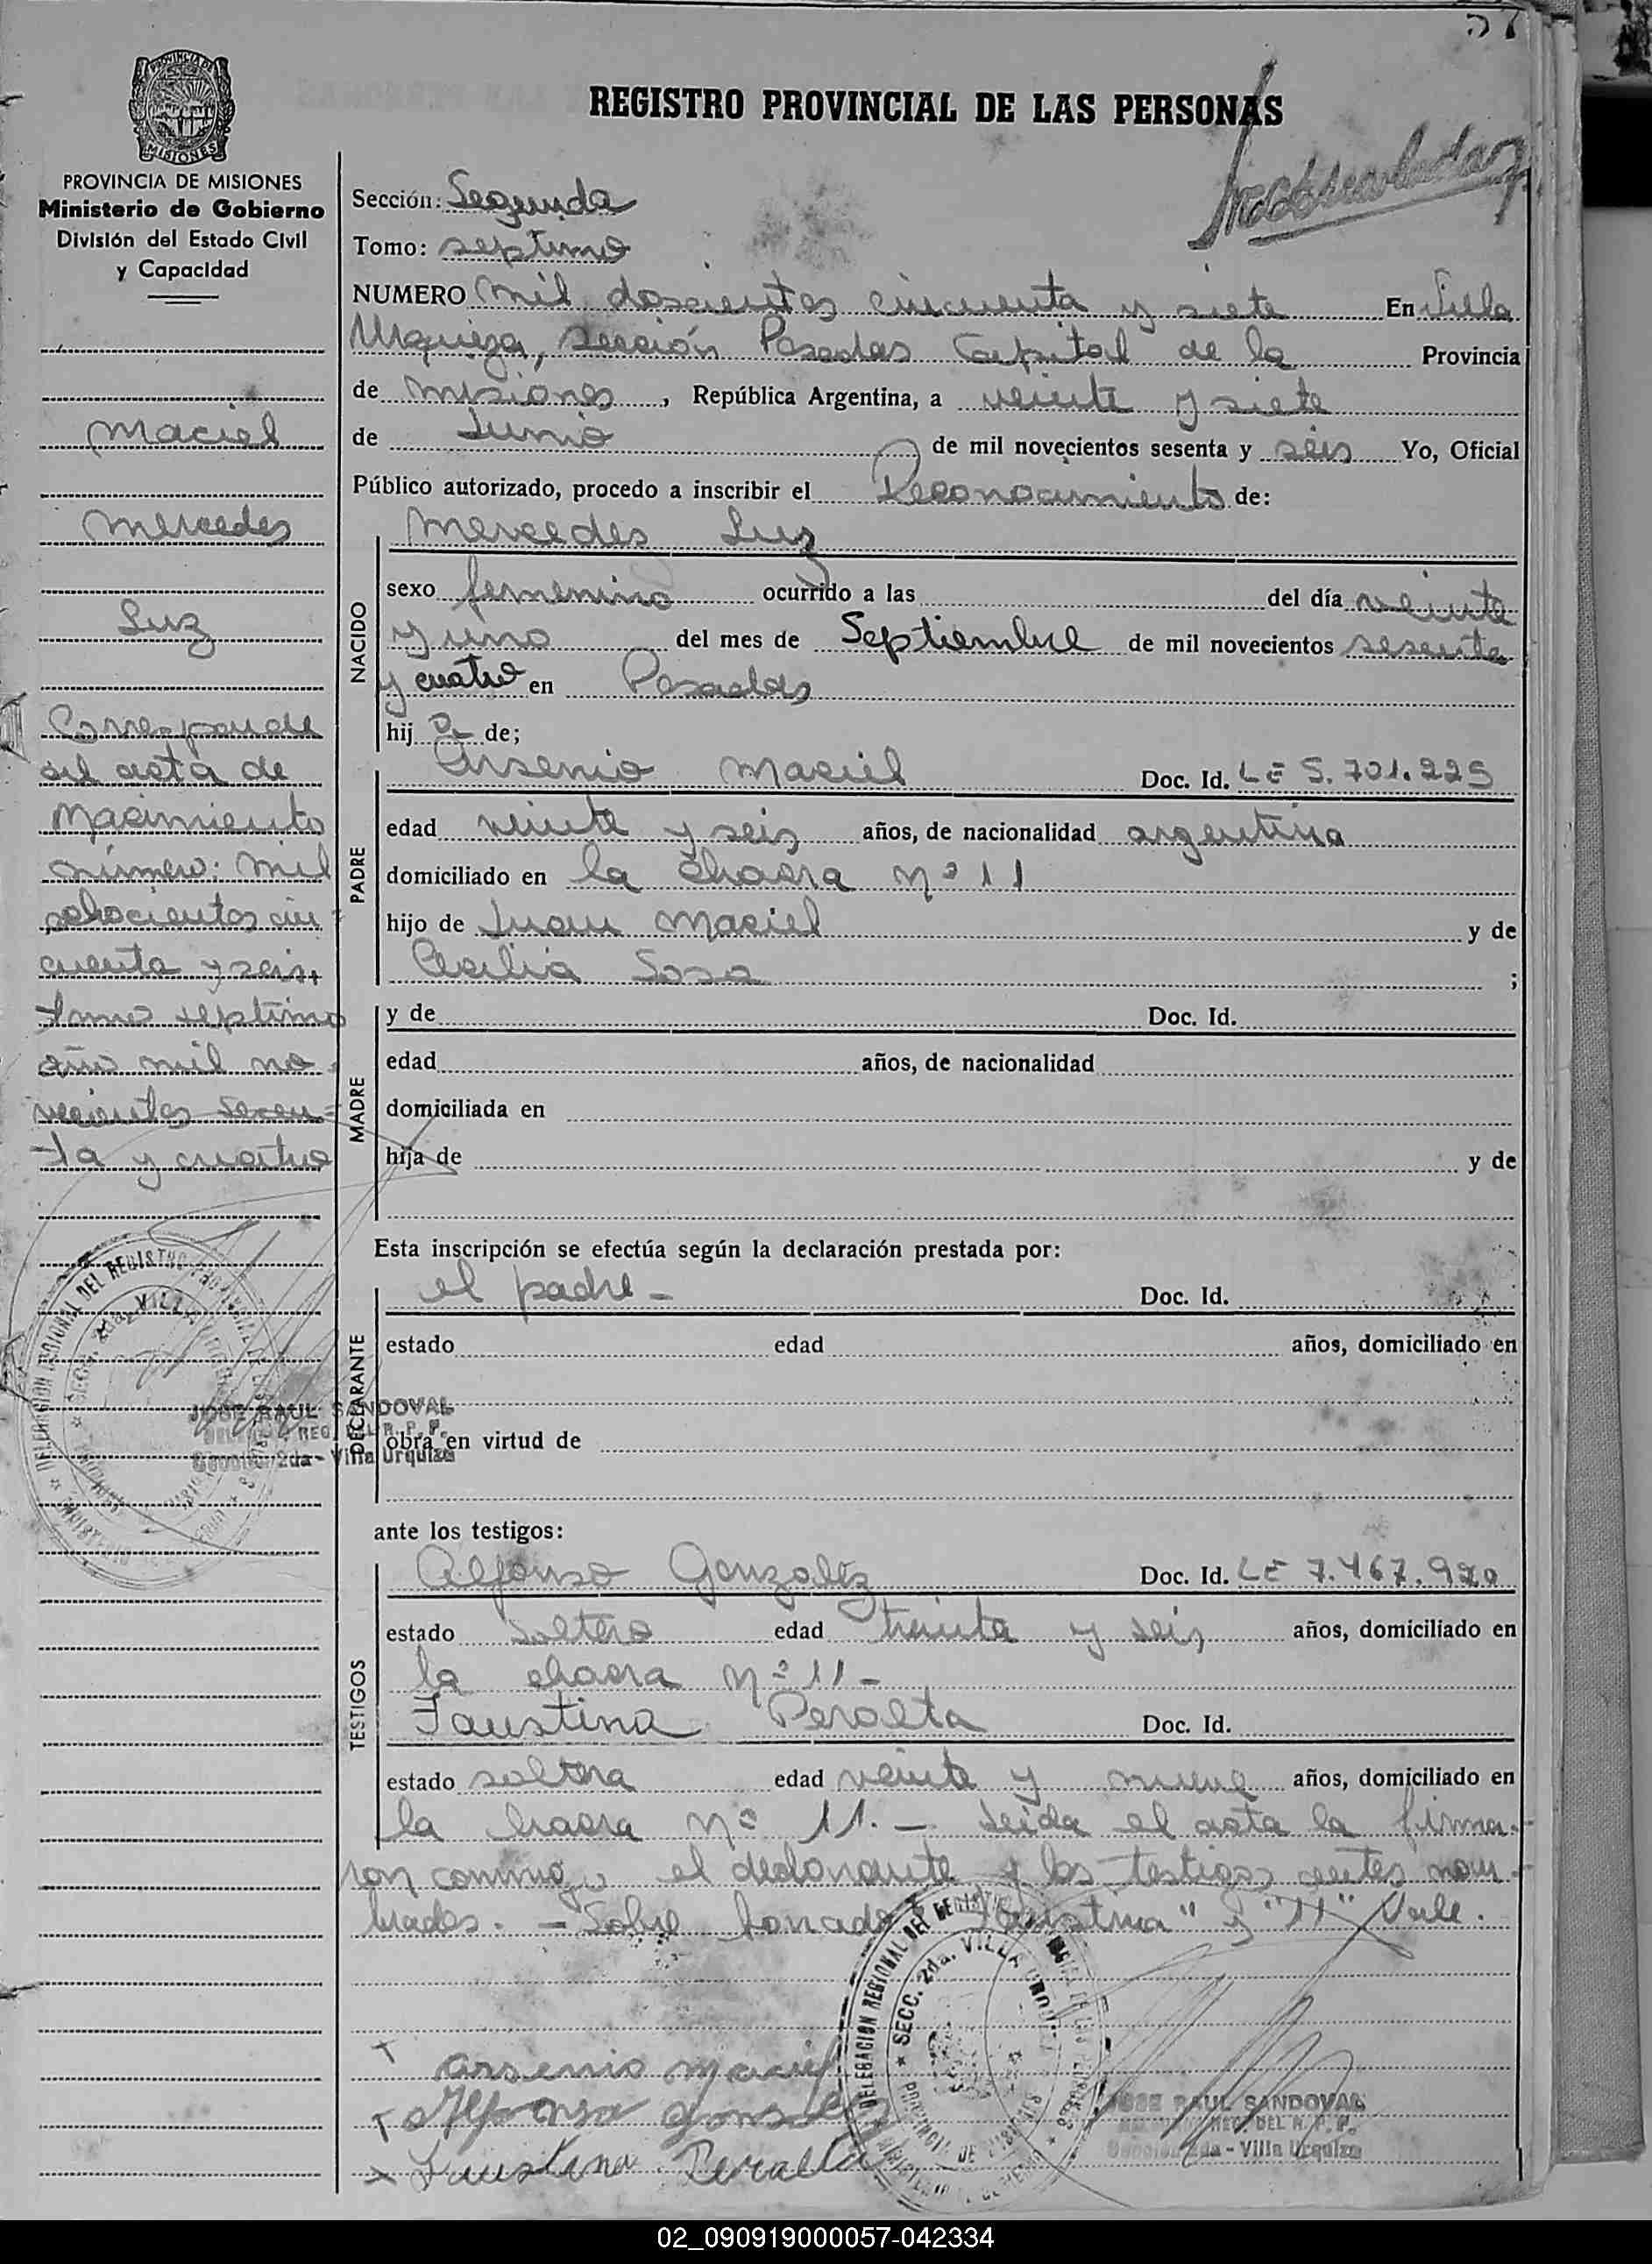 REGISTRO PROVINCIAL DE LAS PERSONAS
MISIONES
PROVINCIA DE MISIONES
Ministerio de Gobierno
División del Estado Civil
y Capacidad
maciel
mercedes
Luz
Corresponde
al acta de
Nacimiento
número: mil
ochocientos cin
cuenta y seis,
tomo septimo
año mil no
vecientos sesen=
ta y cuatro
JOSE RAUL SANDOVAL
Sección 2da - Villa Urquiza
Sección: Segunda
Tomo: septimo
NUMERO mil doscientos cincuenta y siete En Villa
Urquiza, sección Posadas Capital de la Provincia
de misiones, República Argentina, a veinte y siete
de Junio de mil novecientos sesenta y séis Yo, Oficial
Público autorizado, procedo a inscribir el Reconocimiento de:
mercedes Luz
NACIDO
sexo femenino ocurrido a las del día veinte
y uno del mes de Septiembre de mil novecientos sesenta
y cuatro en Posadas
hija de;
PADRE
Arsenio maciel Doc. Id. LE 5.701.225
edad veinte y seis años, de nacionalidad argentina
domiciliado en la chacra nº 11
hijo de Juan maciel y de
Cecilia Sosa ;
MADRE
y de Doc. Id.
edad años, de nacionalidad
domiciliada en
hija de y de
Esta inscripción se efectúa según la declaración prestada por:
DECLARANTE
el padre - Doc. Id.
estado edad años, domiciliado en
obra en virtud de
ante los testigos:
TESTIGOS
Alfonso Gonzalez Doc. Id. LE 7.467.920
estado soltero edad treinta y seis años, domiciliado en
la chacra nº 11-
Faustina Peralta Doc. Id.
estado soltera edad veinte y nueve años, domiciliado en
la hacra nº 11. - Leida el acta la firma-
ron conmigo el declarante y los testigos antes nom-
brados. - Sobre borrado: "Faustina" y "11" Vale.
arsenio maciel
Alfonso gonzalez
Faustina Peralta
DELEGACION REGIONAL DEL REGISTRO
SECC. 2da. VILLA URQUIZA
PROVINCIA DE MISIONES
JOSE RAUL SANDOVAL
Sección 2da - Villa Urquiza
02_090919000057-042334